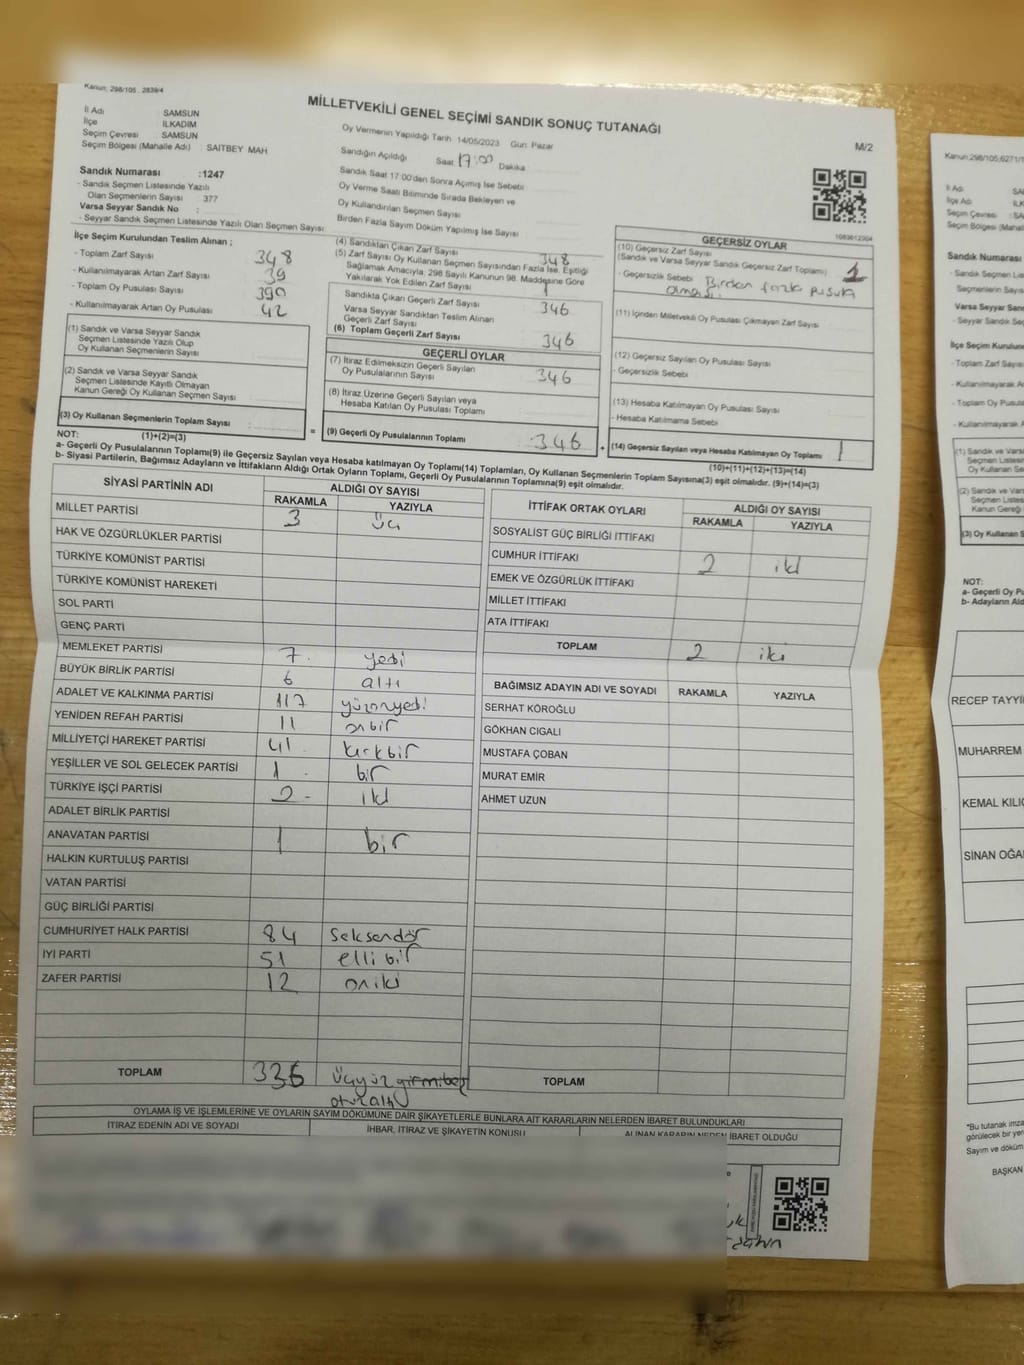 Kanun; 298/105 , 2839/4
MİLLETVEKİLİ GENEL SEÇİMİ SANDIK SONUÇ TUTANAĞI
M/2
İl Adı : SAMSUN
İlçe : İLKADIM
Seçim Çevresi : SAMSUN
Seçim Bölgesi (Mahalle Adı) : SAITBEY MAH
Sandık Numarası :1247
- Sandık Seçmen Listesinde Yazılı
Olan Seçmenlerin Sayısı 377
Varsa Seyyar Sandık No :
- Seyyar Sandık Seçmen Listesinde Yazılı Olan Seçmen Sayısı:
Oy Vermenin Yapıldığı Tarih 14/05/2023 Gün: Pazar
Sandığın Açıldığı Saat 17:00 Dakika
Sandık Saat 17:00'den Sonra Açılmış İse Sebebi
Oy Verme Saati Bitiminde Sırada Bekleyen ve
Oy Kullandırılan Seçmen Sayısı
Birden Fazla Sayım Döküm Yapılmış İse Sayısı
İlçe Seçim Kurulundan Teslim Alınan ;
- Toplam Zarf Sayısı 348
- Kullanılmayarak Artan Zarf Sayısı 39
- Toplam Oy Pusulası Sayısı 390
- Kullanılmayarak Artan Oy Pusulası 42
(1) Sandık ve Varsa Seyyar Sandık
Seçmen Listesinde Yazılı Olup
Oy Kullanan Seçmenlerin Sayısı :
(2) Sandık ve Varsa Seyyar Sandık
Seçmen Listesinde Kayıtlı Olmayan
Kanun Gereği Oy Kullanan Seçmen Sayısı :
(3) Oy Kullanan Seçmenlerin Toplam Sayısı :
(1)+(2)=(3)
(4) Sandıktan Çıkan Zarf Sayısı 348
(5) Zarf Sayısı Oy Kullanan Seçmen Sayısından Fazla İse, Eşitliği
Sağlamak Amacıyla; 298 Sayılı Kanunun 98. Maddesine Göre
Yakılarak Yok Edilen Zarf Sayısı 1
Sandıkta Çıkan Geçerli Zarf Sayısı 346
Varsa Seyyar Sandıktan Teslim Alınan
Geçerli Zarf Sayısı
(6) Toplam Geçerli Zarf Sayısı 346
GEÇERLİ OYLAR
(7) İtiraz Edilmeksizin Geçerli Sayılan
Oy Pusulalarının Sayısı 346
(8) İtiraz Üzerine Geçerli Sayılan veya
Hesaba Katılan Oy Pusulası Toplamı
(9) Geçerli Oy Pusulalarının Toplamı : 346
1083612004
GEÇERSİZ OYLAR
(10) Geçersiz Zarf Sayısı
(Sandık ve Varsa Seyyar Sandık Geçersiz Zarf Toplamı) : 1
- Geçersizlik Sebebi : Birden fazla pusula
olması.
(11) İçinden Milletvekili Oy Pusulası Çıkmayan Zarf Sayısı
(12) Geçersiz Sayılan Oy Pusulası Sayısı :
- Geçersizlik Sebebi :
(13) Hesaba Katılmayan Oy Pusulası Sayısı
- Hesaba Katılmama Sebebi :
(14) Geçersiz Sayılan veya Hesaba Katılmayan Oy Toplamı 1
(10)+(11)+(12)+(13)=(14)
NOT:
a- Geçerli Oy Pusulalarının Toplamı(9) ile Geçersiz Sayılan veya Hesaba katılmayan Oy Toplamı(14) Toplamları, Oy Kullanan Seçmenlerin Toplam Sayısına(3) eşit olmalıdır. (9)+(14)=(3)
b- Siyasi Partilerin, Bağımsız Adayların ve İttifakların Aldığı Ortak Oyların Toplamı, Geçerli Oy Pusulalarının Toplamına(9) eşit olmalıdır.
SİYASİ PARTİNİN ADI ALDIĞI OY SAYISI
RAKAMLA YAZIYLA
MİLLET PARTİSİ 3 üç
HAK VE ÖZGÜRLÜKLER PARTİSİ
TÜRKİYE KOMÜNİST PARTİSİ
TÜRKİYE KOMÜNİST HAREKETİ
SOL PARTİ
GENÇ PARTİ
MEMLEKET PARTİSİ 7. yedi
BÜYÜK BİRLİK PARTİSİ 6 altı
ADALET VE KALKINMA PARTİSİ 117 yüzonyedi
YENİDEN REFAH PARTİSİ 11 onbir
MİLLİYETÇİ HAREKET PARTİSİ 41 kırkbir
YEŞİLLER VE SOL GELECEK PARTİSİ 1 . bir
TÜRKİYE İŞÇİ PARTİSİ 2 - iki
ADALET BİRLİK PARTİSİ
ANAVATAN PARTİSİ 1 bir
HALKIN KURTULUŞ PARTİSİ
VATAN PARTİSİ
GÜÇ BİRLİĞİ PARTİSİ
CUMHURİYET HALK PARTİSİ 84 seksendör
İYİ PARTİ 51 elli bir
ZAFER PARTİSİ 12 oniki
TOPLAM 336 üçyüz yirmibeş
otuzaltı
İTTİFAK ORTAK OYLARI ALDIĞI OY SAYISI
RAKAMLA YAZIYLA
SOSYALİST GÜÇ BİRLİĞİ İTTİFAKI
CUMHUR İTTİFAKI 2 iki
EMEK VE ÖZGÜRLÜK İTTİFAKI
MİLLET İTTİFAKI
ATA İTTİFAKI
TOPLAM 2 iki
BAĞIMSIZ ADAYIN ADI VE SOYADI RAKAMLA YAZIYLA
SERHAT KÖROĞLU
GÖKHAN CIGALI
MUSTAFA ÇOBAN
MURAT EMİR
AHMET UZUN
TOPLAM
OYLAMA İŞ VE İŞLEMLERİNE VE OYLARIN SAYIM DÖKÜMÜNE DAİR ŞİKAYETLERLE BUNLARA AİT KARARLARIN NELERDEN İBARET BULUNDUKLARI
İTİRAZ EDENİN ADI VE SOYADI İHBAR, İTİRAZ VE ŞİKAYETİN KONUSU ALINAN KARARIN NEDEN İBARET OLDUĞU
Kanun;298/105;6271/1
İl Adı
İlçe
Seçim Çevresi
Seçim Bölgesi (Mahal
Sandık Numarası
- Sandık Seçmen Listesinde
Seçmenlerin Sayıs
Varsa Seyyar Sand
- Seyyar Sandık Seçmen
İlçe Seçim Kurulun
- Toplam Zarf Sayıs
- Kullanılmayarak Artan
- Toplam Oy Pusula
- Kullanılmayarak
(1) Sandık ve Varsa
Seçmen Listesin
Oy Kullanan Se
(2) Sandık ve Varsa
Seçmen Listesin
Kanun Gereği O
(3) Oy Kullanan S
NOT:
a- Geçerli Oy Pu
b- Adayların Ald
RECEP TAYYİ
MUHARREM
KEMAL KILIÇ
SİNAN OĞA
*Bu tutanak imza
görülecek bir yer
Sayım ve döküm
BAŞKAN